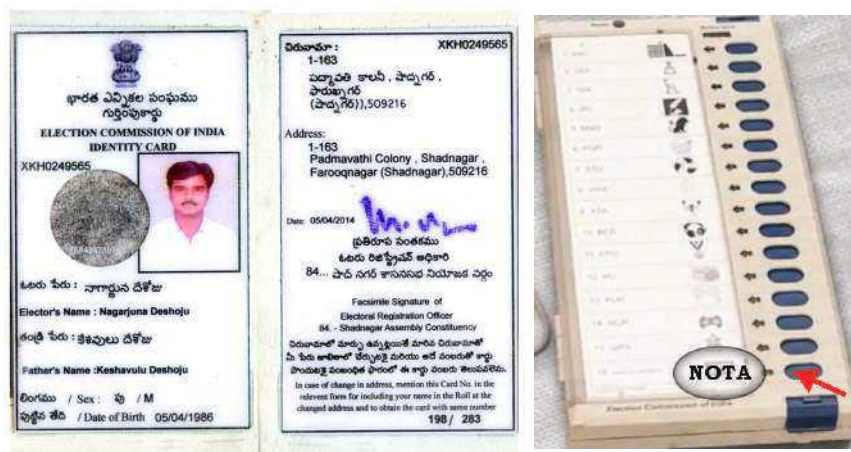 భారత ఎన్నికల సంఘము
గుర్తింపుకార్డు
ELECTION COMMISSION OF INDIA
IDENTITY CARD
XKH0249565
ఓటరు పేరు : నాగార్జున దేశోజు
Elector's Name : Nagarjuna Deshoju
తండ్రి పేరు : కేశవులు దేశోజు
Father's Name :Keshavulu Deshoju
లింగము / Sex : పు / M
పుట్టిన తేది / Date of Birth 05/04/1986
చిరునామా : XKH0249565
1-163
పద్మావతి కాలనీ , షాద్నగర్ ,
ఫారుఖ్నగర్
(షాద్నగర్)),509216
Address:
1-163
Padmavathi Colony , Shadnagar ,
Farooqnagar (Shadnagar),509216
Date 05/04/2014
ప్రతిరూప సంతకము
ఓటరు రిజిస్ట్రేషన్ అధికారి
84... షాద్ నగర్ శాసనసభ నియోజక వర్గం
Facsimile Signature of
Electoral Registration Officer
84. - Shadnagar Assembly Constituency
చిరునామాలో మార్పు ఉన్నట్లయితే మారిన చిరునామాతో
మీ పేరు జాబితాలో చేర్చుటకై మరియు అదే నంబరుతో కార్డు
పొందుటకై సంబంధిత ఫారంలో ఈ కార్డు నంబరు తెలుపవలెను.
In case of change in address, mention this Card No. in the
relevent form for including your name in the Roll at the
changed address and to obtain the card with same number
198 / 283
NOTA
Election Commission of India